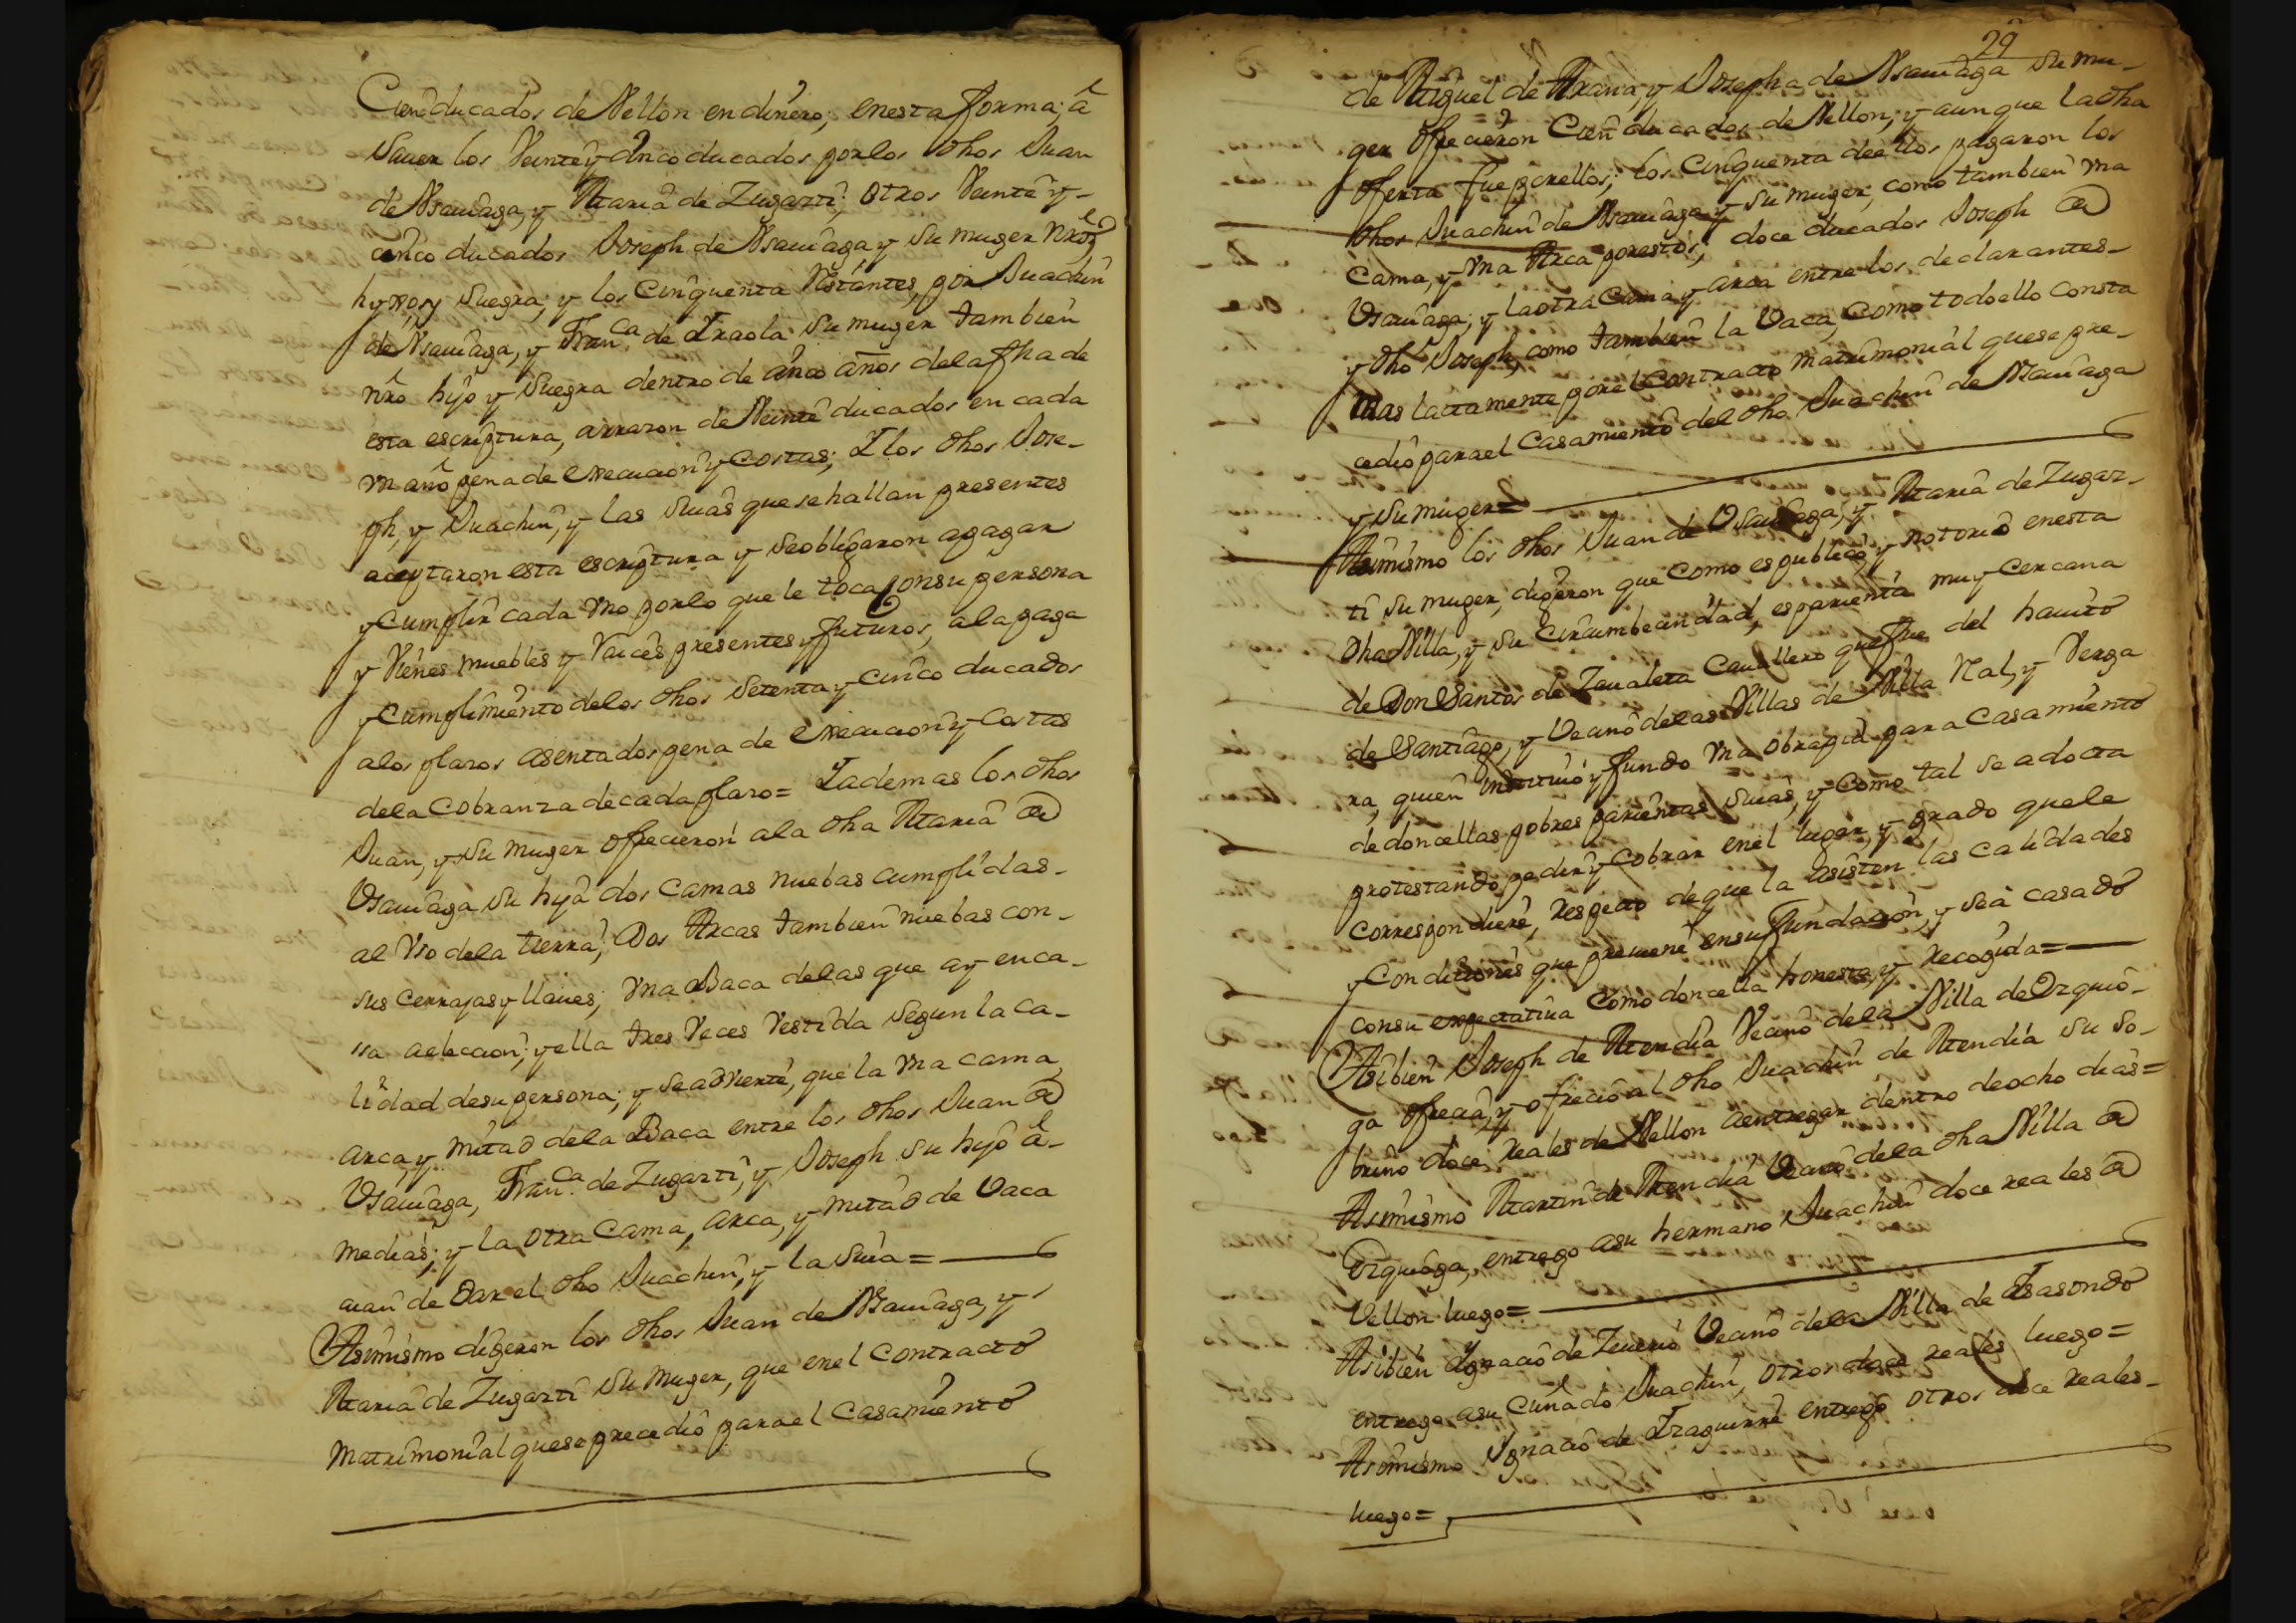 Cien ducados de Vellon en dinero, en esta forma; â
Sauer los Veinte y cinco ducados por los dhos Juan
de Vsauiaga, y Maria de Zugasti; otros Veinte y-
cinco ducados Joseph de Vsauiaga y su muger nros
hyjo, y Suegra; y los cinquenta restantes, por Juachin
de Vsauiaga, y Franca. de Iraola su muger tambien
nro hijo y Suegra dentro de cinco años dela fha de
esta escriptura, arrazon de Veinte ducados en cada
vn año pena de execucion y costas; Y los dhos Jose-
ph, y Juachin, y las suias que se hallan presentes
aceptaron esta escriptura y se obligaron apagar
y Cumplir cada vno por lo que le toca con su persona
y Vienes muebles y raices presentes y futuros, ala paga
y Cumplimiento delos dhos Setenta y cinco ducados
alos plazos asentados pena de execucion y Costas
dela Cobranza de cada plazo= Y ademas los dhos
Juan, y su muger ofrecieron ala dha Maria de
Vsauiaga su hyja dos camas nuebas cumplidas-
al Vso dela tierra, Dos Arcas tambien nuebas con-
sus Cerrajas y llaues; vna Baca delas que ay en ca-
sa aeleccion; y ella tres Veces Vestida Segun la ca-
lidad desu persona; y se advierte, que la vna cama,
arca, y mitad dela Baca entre los dhos Juan de
Vsauiaga, Franca. de Zugasti, y Joseph su hijo â-
medias; y la otra Cama, arca, y mitad de Vaca
aian de Dar el dho Juachin, y la Suia=
Asimismo digeron los dhos Juan de Vsauiaga, y
Maria de Zugasti su muger, que en el Contracto
Matrimonial que se precedió para el Casamiento
29
de Miguel de Arana, y Josepha de Vsauiaga su mu-
ger ofrecieron Cien ducados de Vellon; y aunque la dha
oferta fue por ellos; los cinquenta de ellos pagaron los
dhos Juachin de Vsauiaga y su muger, como tambien vna
Cama, y vna Arca por estos; doce ducados Joseph de
Vsauiaga; y la otra Cama y arca entre los declarantes-
y dho Joseph, como tambien la Vaca, como todo ello consta
mas lactamente por el Contracto matrimonial que se pre-
cedió para el Casamiento del dho Juachin de Vsauiaga
y su muger=
Asimismo los dhos Juan de Vsauiaga, y Maria de Zugas-
ti su muger, digeron que como es publico, y notorio en esta
dha Villa, y su Circumbecindad, es parienta muy Cercana
de Don Santos de Zaualeta Cauallero que fue del hauito
de Santiago, y Vecino delas Villas de Villa Real, y Verga
ra, quien instituió y fundo vna obra pia para Casamiento
de doncellas pobres parientas suias, y Como tal se a docta
protestando pedir y Cobrar en el lugar, y grado que le
Correspondiere, respecto de que la asisten las calidades
y Condiciones que preuiene en su fundacion, y Sea casado
con su expectatiua como doncella honesta, y Recogida=
Asibien Joseph de Mendia Vecino dela Villa de Vrquio-
ga ofrecia, y ofreció al dho Juachin de Mendia su So-
brino doce reales de Vellon aentregar dentro de ocho dias=
Asimismo Martin de Mendia Vecino dela dha Villa de
Vrquioga, entrego asu hermano Juachin doce reales de
Vellon luego=
Asibien Ygnacio de Zeuerio Vecino dela Villa de Ysasondo
entrego asu Cuñado Juachin, otros doce reales luego=
Asimismo Ygnacio de Yzaguirre entregó otros doce reales-
luego=